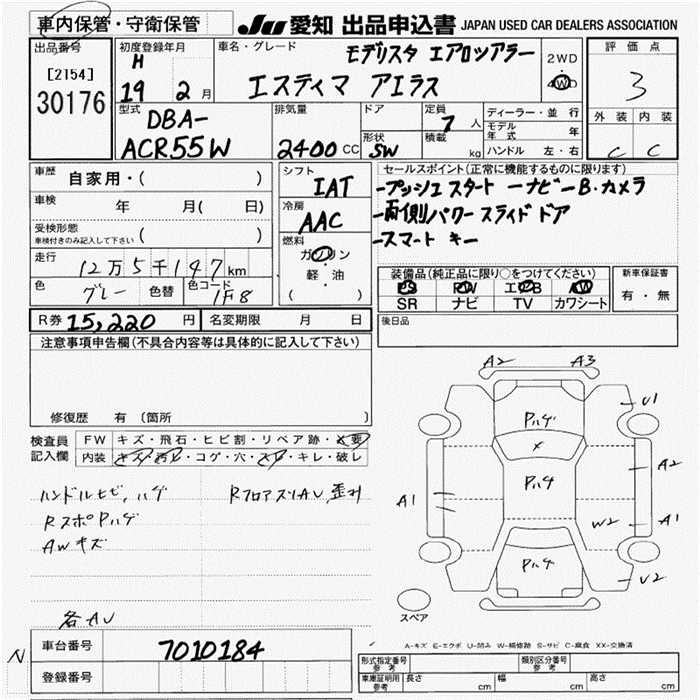 車内保管・守衛保管
JU 愛知 出品申込書 JAPAN USED CAR DEALERS ASSOCIATION
出品番号
[2154]
30176
初度登録年月
H
19 2月
車名・グレード
モデリスタ エアロツアラー
エスティマ アエラス
2WD
4WD
評価点
3
外装 内装
C C
型式
DBA-
ACR55W
排気量
2400CC
ドア
形状
SW
定員
7人
積載
kg
ディーラー・並行
モデル年式 年
ハンドル 左・右
車歴 自家用・( )
車検 年 月( 日)
受検形態
車検付きのみ記入して下さい ( )
走行
12万5千147km
色 グレー 色替 色コード 1F8
シフト
IAT
冷房
AAC
燃料
ガソリン
・
軽・油
( )
セールスポイント(正常に機能するものに限ります)
-プッシュスタート -ナビ-B・カメラ
-両側パワースライドドア
-スマートキー
装備品(純正品に限り○をつけてください)
PS PW エアB AW
SR ナビ TV カワシート
新車保証書
有・無
R券 15,220円 名変期限 月 日
後日品
注意事項申告欄(不具合内容等は具体的に記入して下さい)
修復歴 有 (箇所 )
検査員
記入欄
FW キズ・飛石・ヒビ割・リペア跡・×要
内装 キズ・汚レ・コゲ・穴・スレ・キレ・破レ
ハンドルヒビ、ハゲ
RスポPハゲ
AWキズ
RフロアスリAU、歪み
各AU
A2 A3
U1
Pハゲ
×
Pハゲ
A2
A1
W2
A1
Pハゲ
U2
スペア
A-キズ E-エクボ U-凹み W-補修跡 S-サビ C-腐食 XX-交換済
N
車台番号 7010184
登録番号
形式指定番号
参考
類別区分番号
参考
車庫証明用
参考
長さ cm 幅 cm 高さ cm